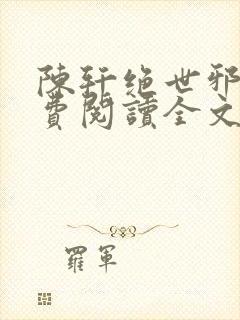 陳軒絕世邪
費閱讀全文
羅軍